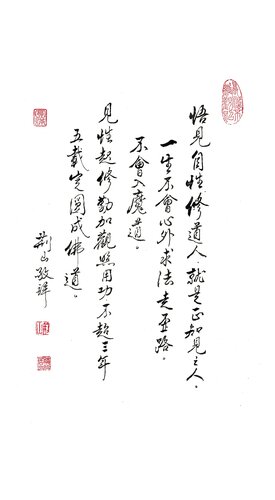 悟見自性修道人，就是正知見之人，
一生不會心外求法走歪路。
不會入魔道。
見性起修勤加觀照用功不超三年
五載定圓成佛道。
荆山敬譯